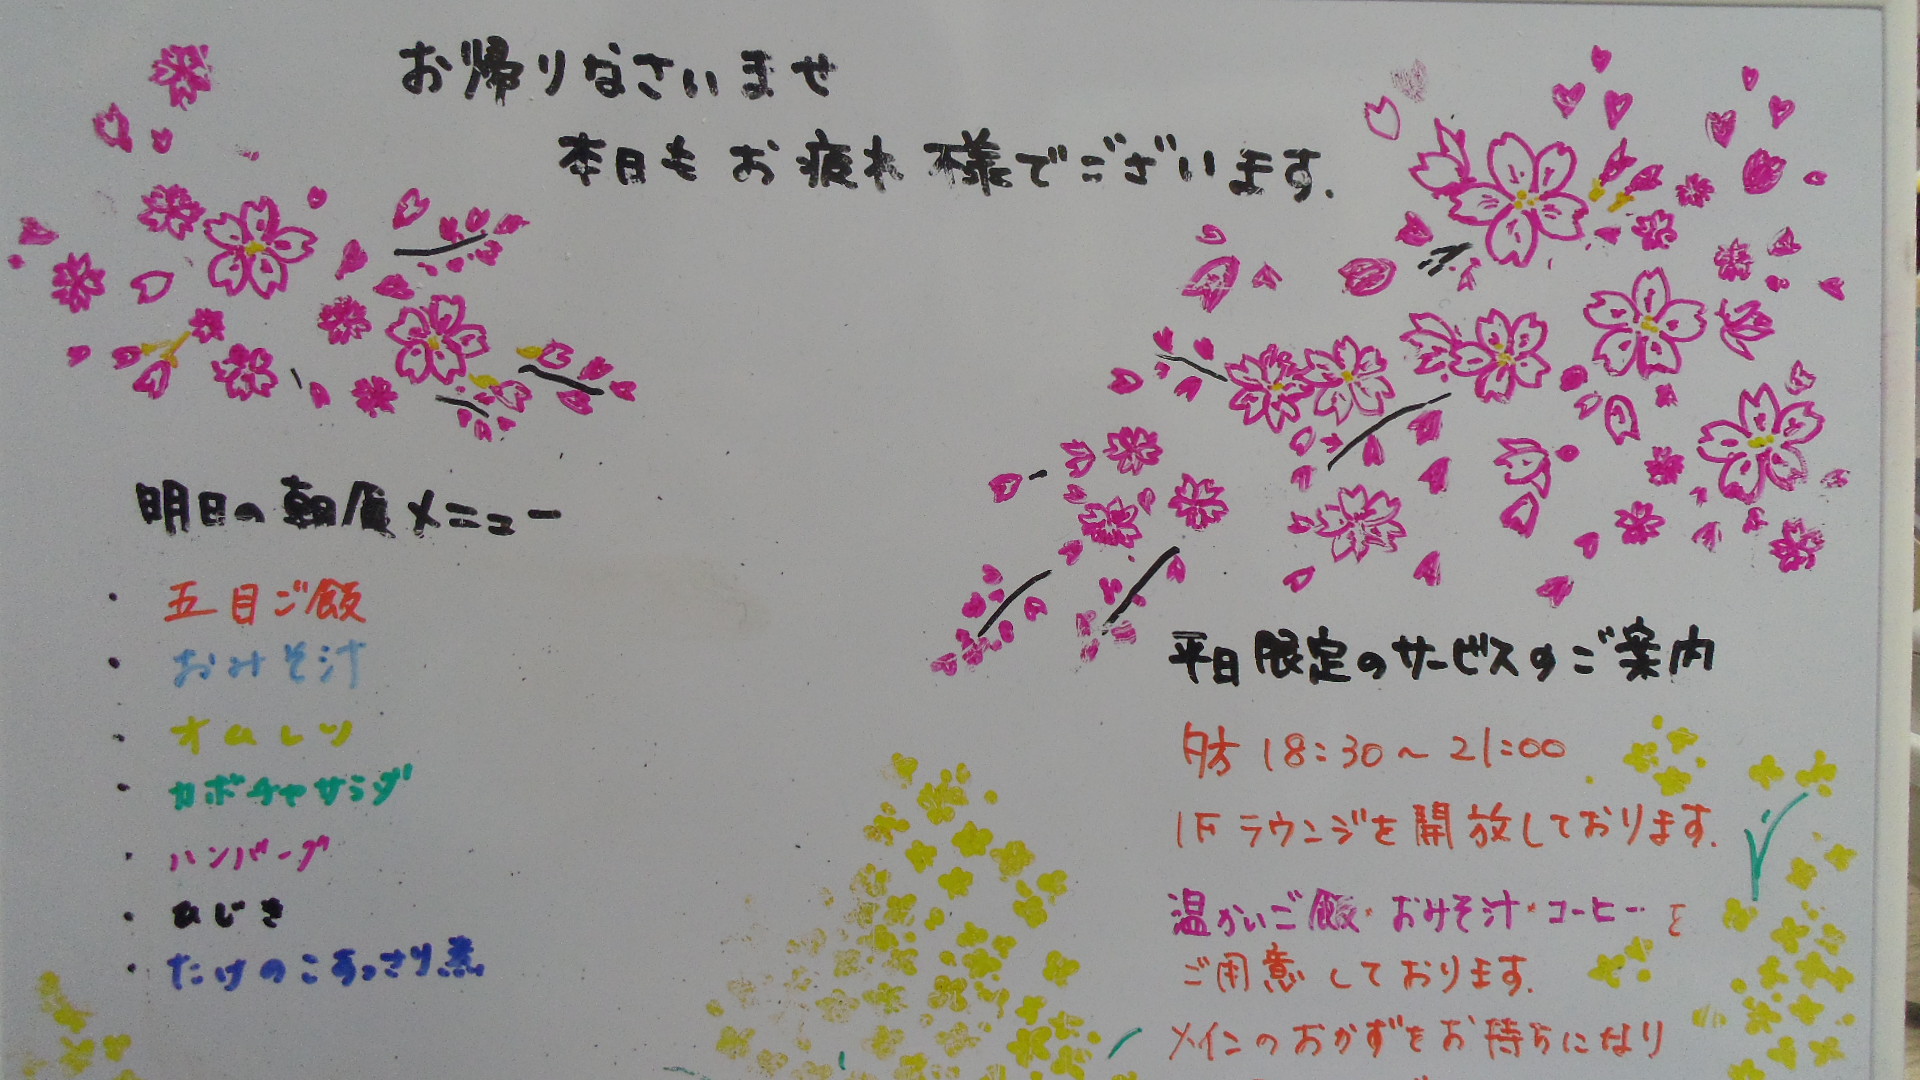 お帰りなさいませ
本日もお疲れ様でございます.
明日の朝食メニュー
・五目ご飯
・おみそ汁
・オムレツ
・カボチャサラダ
・ハンバーグ
・ひじき
・たけのこあっさり煮
平日限定のサービスのご案内
夕方 18:30～21:00
1Fラウンジを開放しております.
温かいご飯・おみそ汁・コーヒーを
ご用意しております.
メインのおかずをお持ちになり